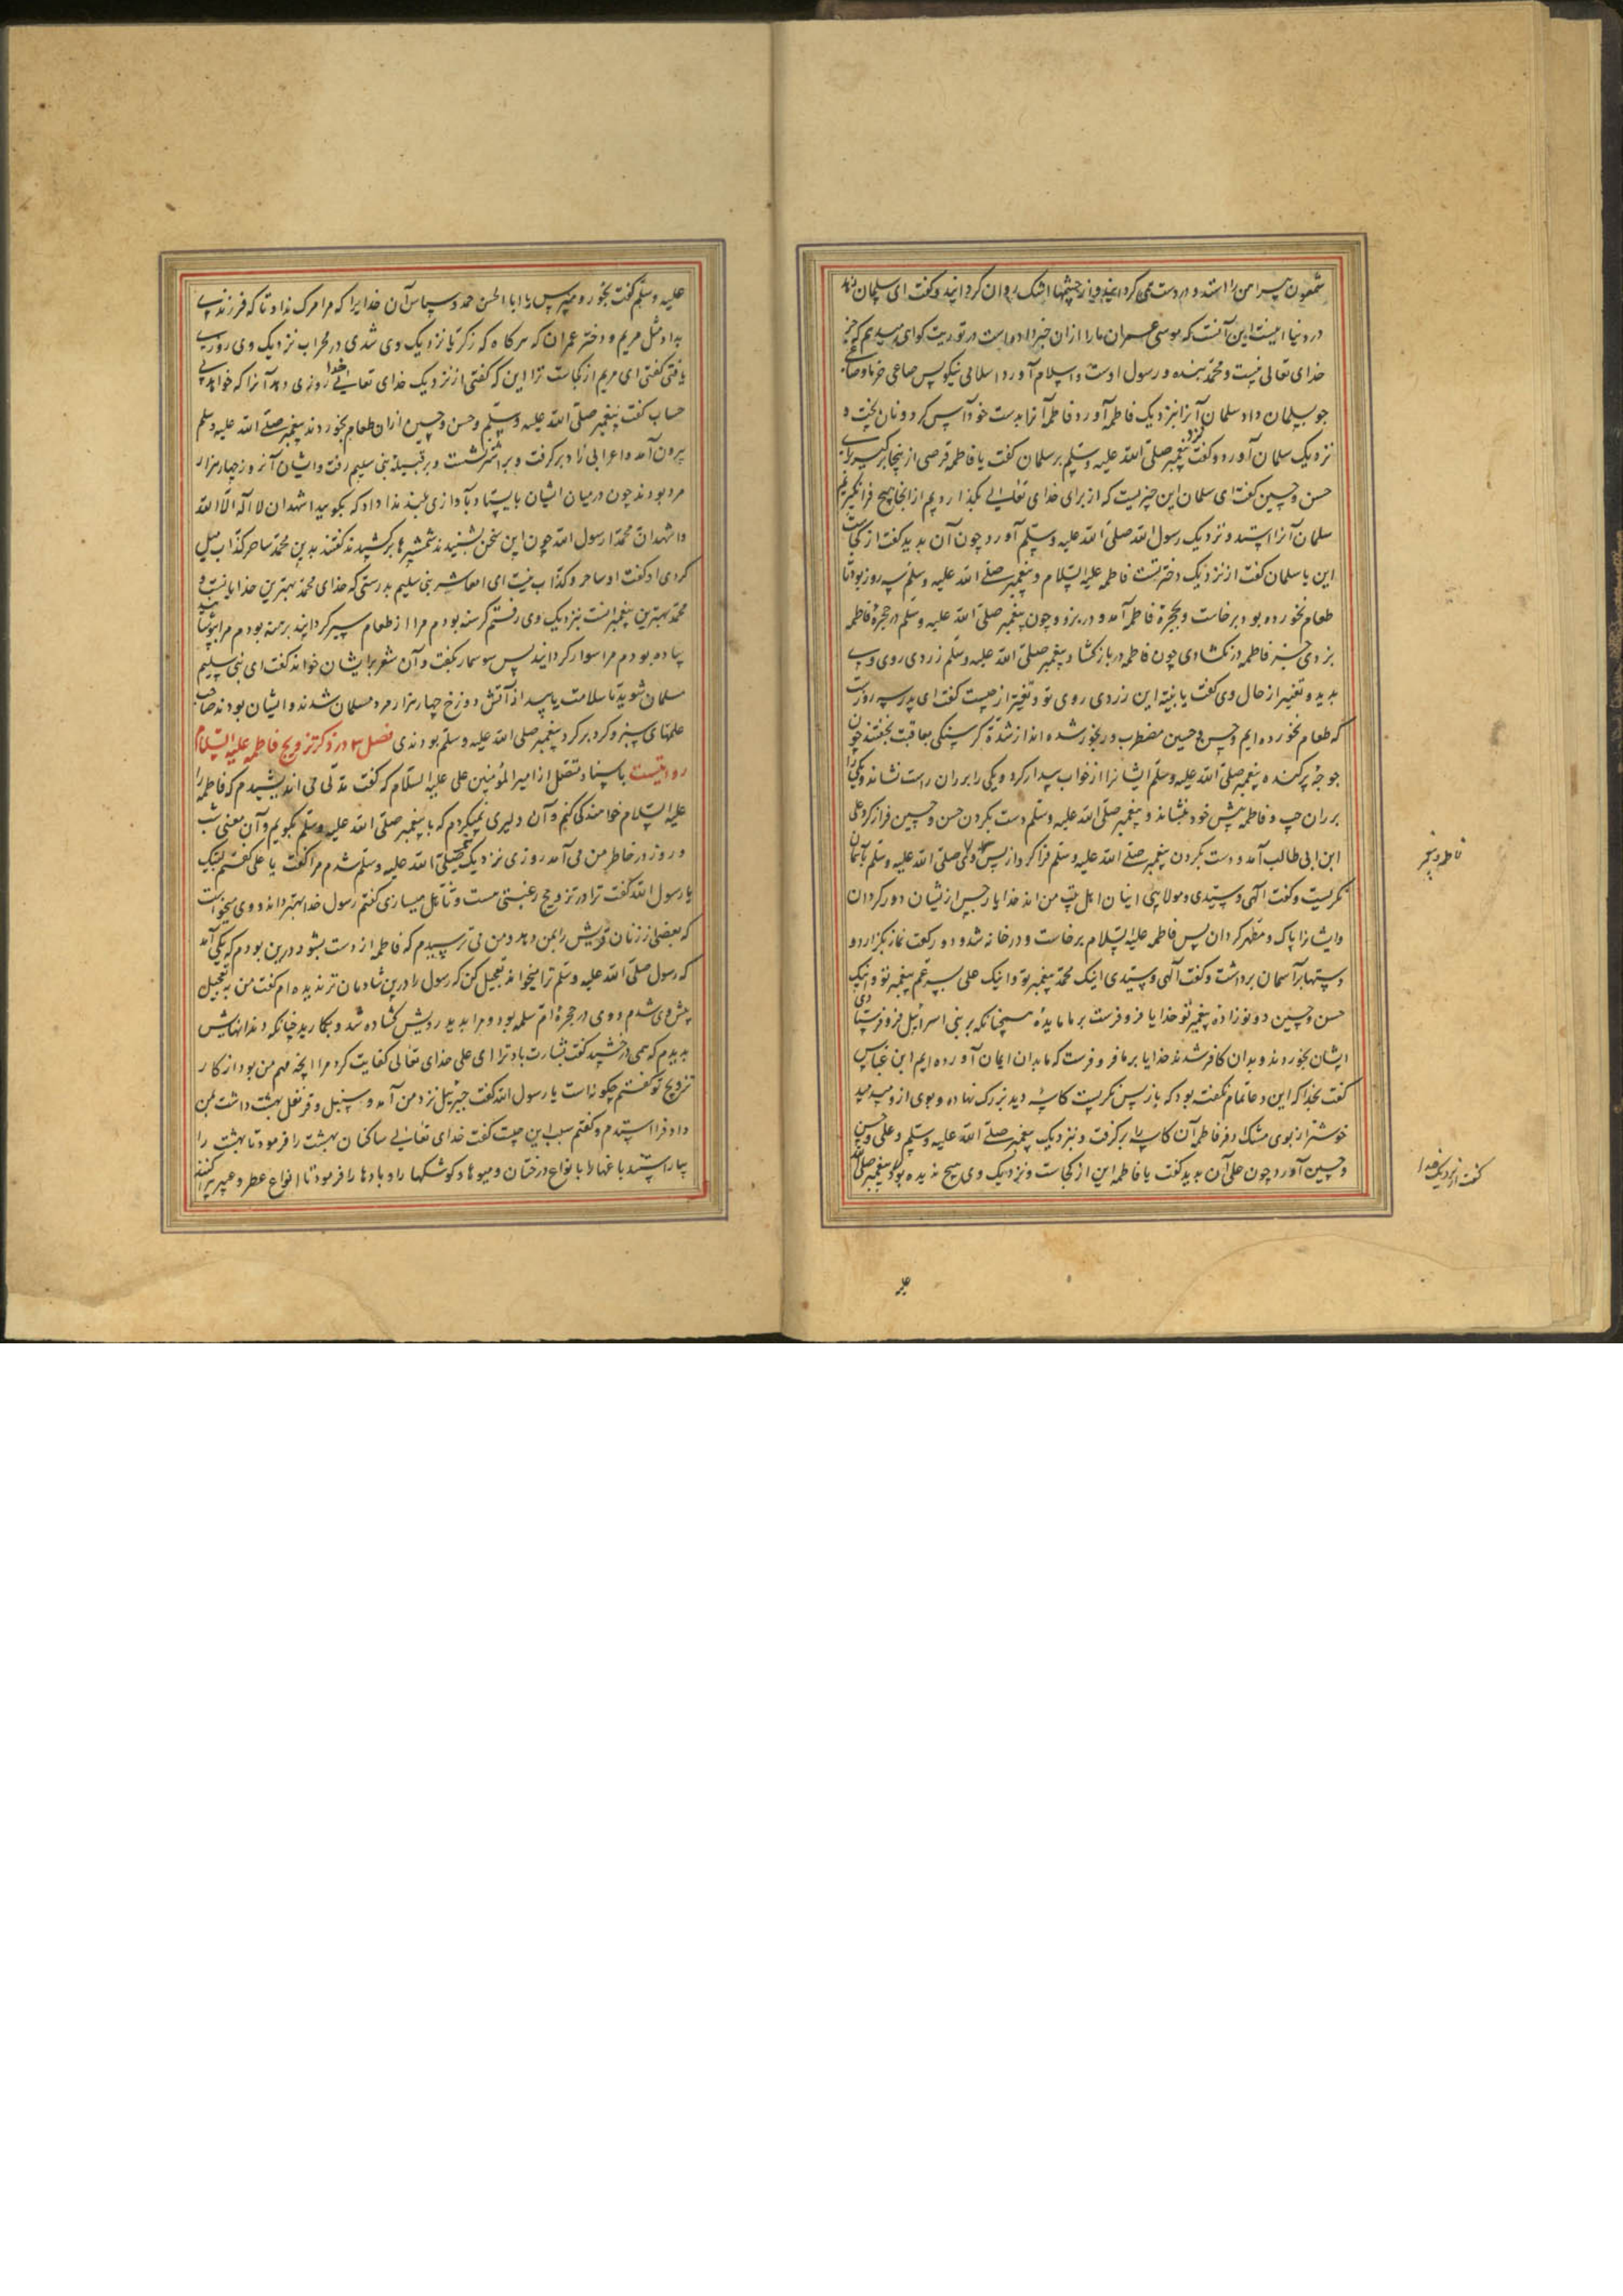 شمعون پیراهن را استد و در دست می کردانید و از چشمها اشک روان کردانید و کفت ای سلمان زهد
در دنیا اینست این آنست که موسی عمران ما را از ان خبر داده است در توریت کواهی میدهم که جز
خدای تعالی نیست و محمد بنده و رسول اوست و اسلام آورد اسلامی نیکو پس صاعی خرما و صاعی
جو بسلمان داد سلمان آنرا بنزدیک فاطمه آورد فاطمه آنرا بدست خود آس کرد و نان بپخت و
نزدیک سلمان آورد و کفت نزد پیغمبر صلی الله علیه وسلم بر سلمان کفت یا فاطمه قرصی از ینجا برکیر برای
حسن و حسین کفت ای سلمان این چیزیست که از برای خدای تعالی بگذاردیم از انجا هیچ فرا نکیریم
سلمان آنرا استد و نزدیک رسول الله صلی الله علیه وسلم آورد چون آن بدید کفت از کجاست
این یا سلمان کفت از نزدیک دختر تست فاطمه علیها السلام و پیغمبر صلی الله علیه وسلم سه روز بود تا
طعام نخورده بود برخاست و بحجرهٔ فاطمه آمد و در بزد و چون پیغمبر صلی الله علیه وسلم در حجرهٔ فاطمه
بزدی جز فاطمه در نکشادی چون فاطمه در باز کشاد پیغمبر صلی الله علیه وسلم زردی روی وی
بدید و تغییر از حال وی کفت یا بنیه این زردی روی تو و تغیر از چیست کفت ای پدر سه روزست
که طعام نخورده ایم و حسن و حسین مضطرب و رنجور شده اند از شدة کرسنکی بعاقبت بخفتند چون
جوجهٔ پرکنده پیغمبر صلی الله علیه وسلم ایشانرا از خواب بیدار کرد و یکی را بر ران راست نشاند و یکی را
بر ران چپ و فاطمه پیش خود بنشاند و پیغمبر صلی الله علیه وسلم دست بکردن حسن و حسین فراز کرد علی
ابن ابی طالب آمد و دست بکردن پیغمبر صلی الله علیه وسلم فرا کرد از پس وی صلی الله علیه وسلم بآسمان
نکریست و کفت الهی و سیدی و مولایی اینان اهل بیت من اند خدایا رجس از یشان دور کردان
و ایشانرا پاک و مطهر کردان پس فاطمه علیها السلام برخاست و در خانه شد و دو رکعت نماز بکزارد و
دستها بر آسمان برداشت و کفت الهی و سیدی اینک محمد پیغمبر تو و اینک علی پسر عم پیغمبر تو و اینک
حسن و حسین دو نوزادهٔ پیغمبر تو خدایا فرو فرست بر ما مایده همچنانکه بر بنی اسرائیل فرو فرستادی
ایشان بخوردند و بدان کافر شدند خدایا بر ما فرو فرست که ما بدان ایمان آورده ایم ابن عباس
کفت بخدا که این دعا تمام نکفت بود که باز پس نکریست کاسهٔ دید بزرک نهاده و بوی از و میدمید
خوشتر از بوی مشک اذفر فاطمه آن کاسه را برکرفت و بنزدیک پیغمبر صلی الله علیه وسلم و علی و حسن
و حسین آورد چون علی آن بدید کفت یا فاطمه این از کجاست و نزدیک وی هیچ ندیده بود پیغمبر صلی الله
فاطمه و نیز
کفت از نزدیک خدا
علیه وسلم کفت بخور و مپرس یا ابا الحسن حمد و سپاس آن خدایرا که مرا مرک نداد تا که فرزندی
بداد مثل مریم و دختر عمران که هرکاه که زکریا نزدیک وی شدی در محراب نزدیک وی روزیی
یافتی کفتی ای مریم از کجاست ترا این که کفتی از نزدیک خدای تعالی خدا روزی دهد آنرا که خواهد بی
حساب کفت پیغمبر صلی الله علیه وسلم و حسن و حسین از ان طعام بخوردند پیغمبر صلی الله علیه وسلم
بیرون آمد و اعرابی زاد برکرفت و بر اشتر نشست و بر قبیلهٔ بنی سلیم رفت و ایشان آنروز چهار هزار
مرد بودند چون در میان ایشان بایستاد بآوازی بلند ندا داد که بکویید اشهد ان لا اله الا الله
و اشهد ان محمدا رسول الله چون این سخن بشنیدند شمشیرها برکشیدند کفتند بدین محمد ساحر کذاب میل
کردی او کفت او ساحر و کذاب نیست ای معاشر بنی سلیم بدرستی که خدای محمد بهترین خدایانست و
محمد بهترین پیغمبرانست بنزدیک وی رفتم کرسنه بودم مرا از طعام سیر کردانید برهنه بودم مرا بپوشانید
پیاده بودم مرا سوار کردانید پس سوسمار بکفت و آن شعر بر ایشان خواند کفت ای بنی سلیم
مسلمان شوید تا سلامت یابید از آتش دوزخ چهار هزار مرد مسلمان شدند و ایشان بودند صاحب
علمهای سبز و کرد بر کرد پیغمبر صلی الله علیه وسلم بودندی فصل ۳ در ذکر تزویج فاطمه علیها السلام
روایتست باسناد متصل از امیر المؤمنین علی علیه السلام که کفت مدتی می اندیشیدم که فاطمه را
علیها السلام خواهندکی کنم و آن دلیری نمیکردم که با پیغمبر صلی الله علیه وسلم بکویم و آن معنی شب
و روز در خاطر من می آمد روزی نزدیک پیغمبر صلی الله علیه وسلم شدم مرا کفت یا علی کفتم لبیک
یا رسول الله کفت ترا در تزویج رغبتی هست و تأهل میسازی کفتم رسول خدا بهتر داند و وی میخواست
که بعضی از زنان قریش را بمن دهد و من می ترسیدم که فاطمه از دست بشود درین بودم که یکی آمد
که رسول صلی الله علیه وسلم ترا میخواند تعجیل کن که رسول را درین شادمان تر ندیده ام کفت من به تعجیل
پیش وی شدم و وی در حجرهٔ ام سلمه بود و مرا بدید رویش کشاده شد و بکارید چنانکه دندانهاش
بدیدم که همی درخشید کفت بشارت باد ترا ای علی خدای تعالی کفایت کرد مرا انچه مهم من بود از کار
تزویج تو کفتم چکونه است یا رسول الله کفت جبرئیل نزد من آمد و سنبل و قرنفل بهشت داشت بمن
داد فرا استدم و کفتم سبب این چیست کفت خدای تعالی ساکنان بهشت را فرمود تا بهشت را
بیاراستند باغها را بانواع درختان و میوها و کوشکها را و بادها را فرمود تا انواع عطر و عبیر